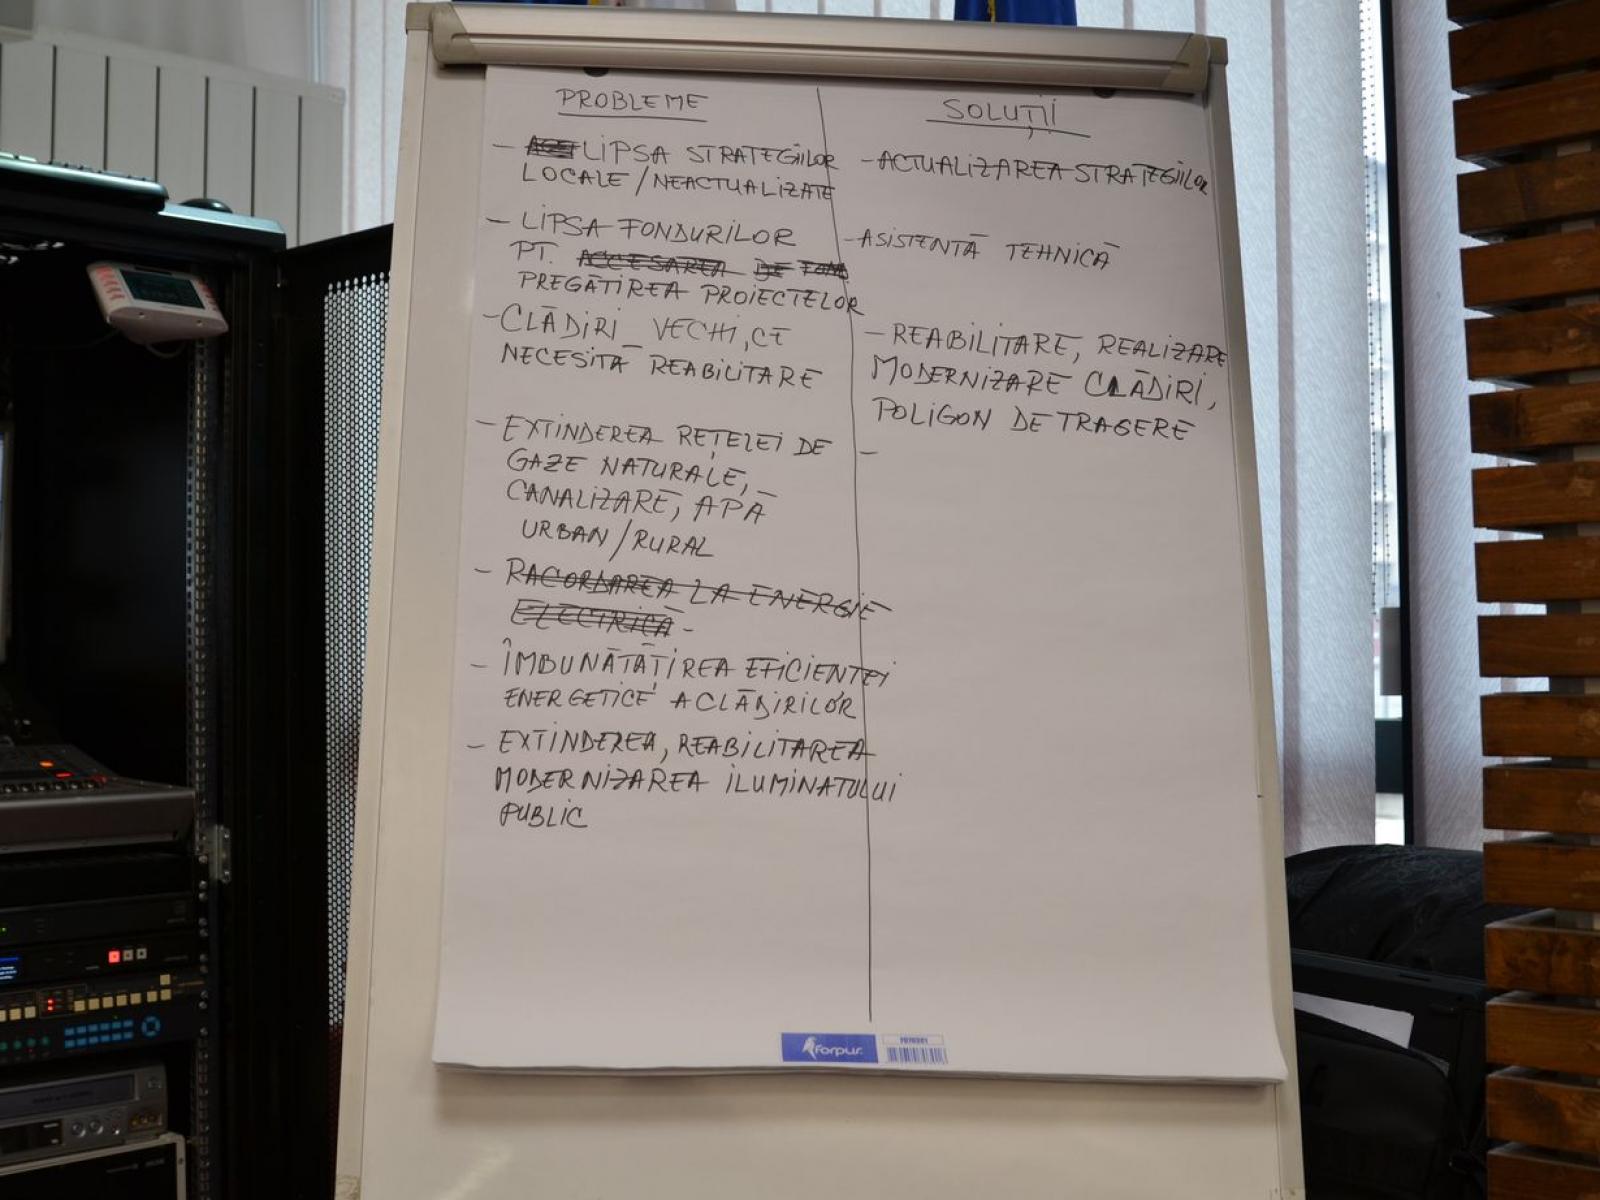 PROBLEME
- LIPSA STRATEGIILOR
LOCALE / NEACTUALIZATE
- LIPSA FONDURILOR
PT. ACCESAREA DE FOND
PREGĂTIREA PROIECTELOR
- CLĂDIRI VECHI, CE
NECESITĂ REABILITARE
- EXTINDEREA REȚELEI DE
GAZE NATURALE,
CANALIZARE, APĂ
URBAN / RURAL
- RACORDAREA LA ENERGIE
ELECTRICĂ -
- ÎMBUNĂTĂȚIREA EFICIENTEI
ENERGETICE A CLĂDIRILOR
- EXTINDEREA, REABILITAREA
MODERNIZAREA ILUMINATULUI
PUBLIC
SOLUȚII
- ACTUALIZAREA STRATEGIILOR
- ASISTENTĂ TEHNICĂ
- REABILITARE, REALIZARE
MODERNIZARE CLĂDIRI,
POLIGON DE TRAGERE
-
forpus